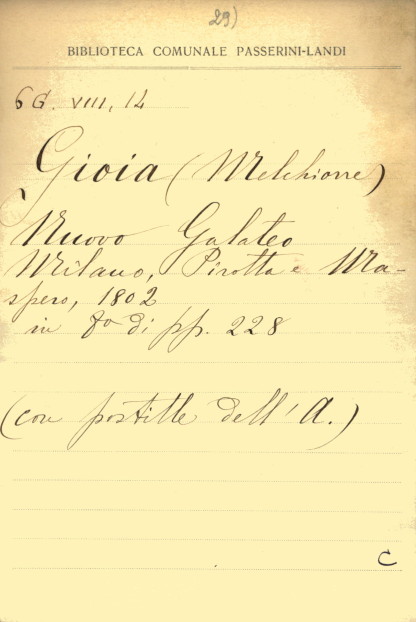 29)
BIBLIOTECA COMUNALE PASSERINI-LANDI
6G. VIII, 14
Gioia (Melchiorre)
Nuovo Galateo
Milano, Pirotta e Ma-
spero, 1802
in 8º di pp. 228
(con postille dell'A.)
C